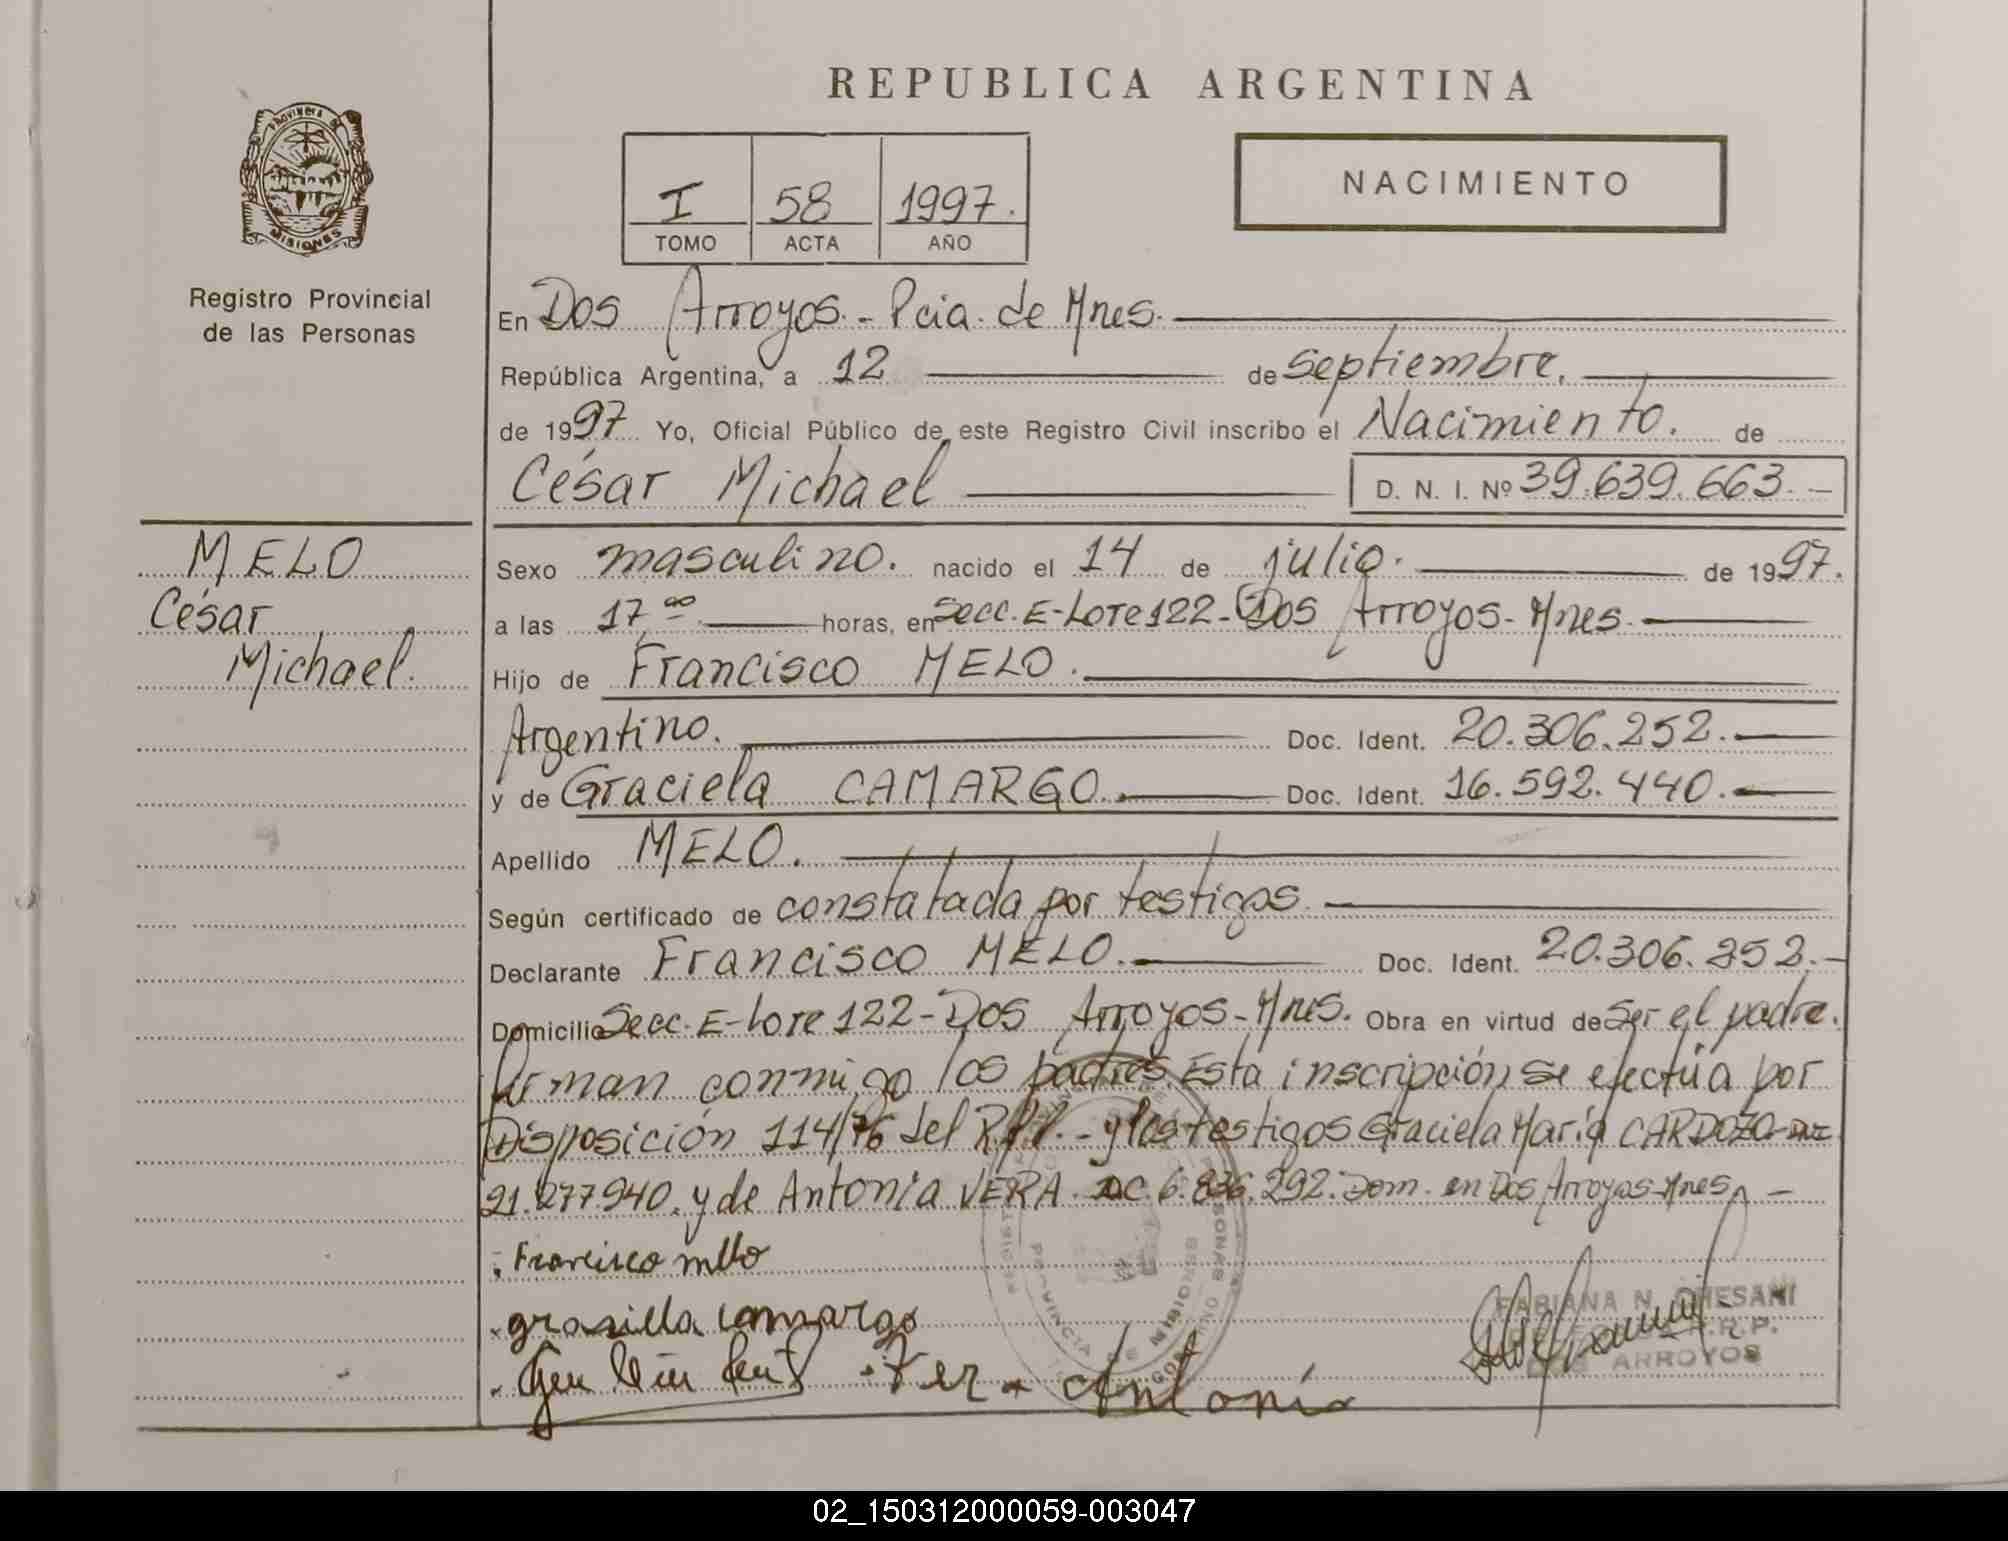 REPUBLICA ARGENTINA
PROVINCIA DE
MISIONES
Registro Provincial
de las Personas
I 58 1997.
TOMO ACTA AÑO
NACIMIENTO
En Dos Arroyos.- Pcia. de Mnes.
República Argentina, a 12 de septiembre.
de 1997 Yo, Oficial Público de este Registro Civil inscribo el Nacimiento. de
César Michael D. N. I. Nº 39.639.663.-
MELO
César
Michael.
Sexo masculino. nacido el 14 de julio. de 1997.
a las 17 00 horas, en Secc. E-Lote 122-Dos Arroyos-Mnes.
Hijo de Francisco MELO.
Argentino. Doc. Ident. 20.306.252.
y de Graciela CAMARGO. Doc. Ident. 16.592.440.
Apellido MELO.
Según certificado de constatada por testigos.
Declarante Francisco MELO. Doc. Ident. 20.306.252.-
Domicilio Secc. E-Lote 122-Dos Arroyos-Mnes. Obra en virtud de ser el padre.
Firman conmigo los padres. Esta inscripción se efectúa por
Disposición 114/76 del R.P.P.- y los testigos Graciela María CARDOZO-
21.277.940. y de Antonia VERA. 6.836.292. Dom. en Dos Arroyos-Mnes.-
Francisco mello
grasiella camargo
Ver Antonia
FABIANA N. CHESANI
R.R.P.
DOS ARROYOS
PROVINCIA DE MISIONES
02_150312000059-003047